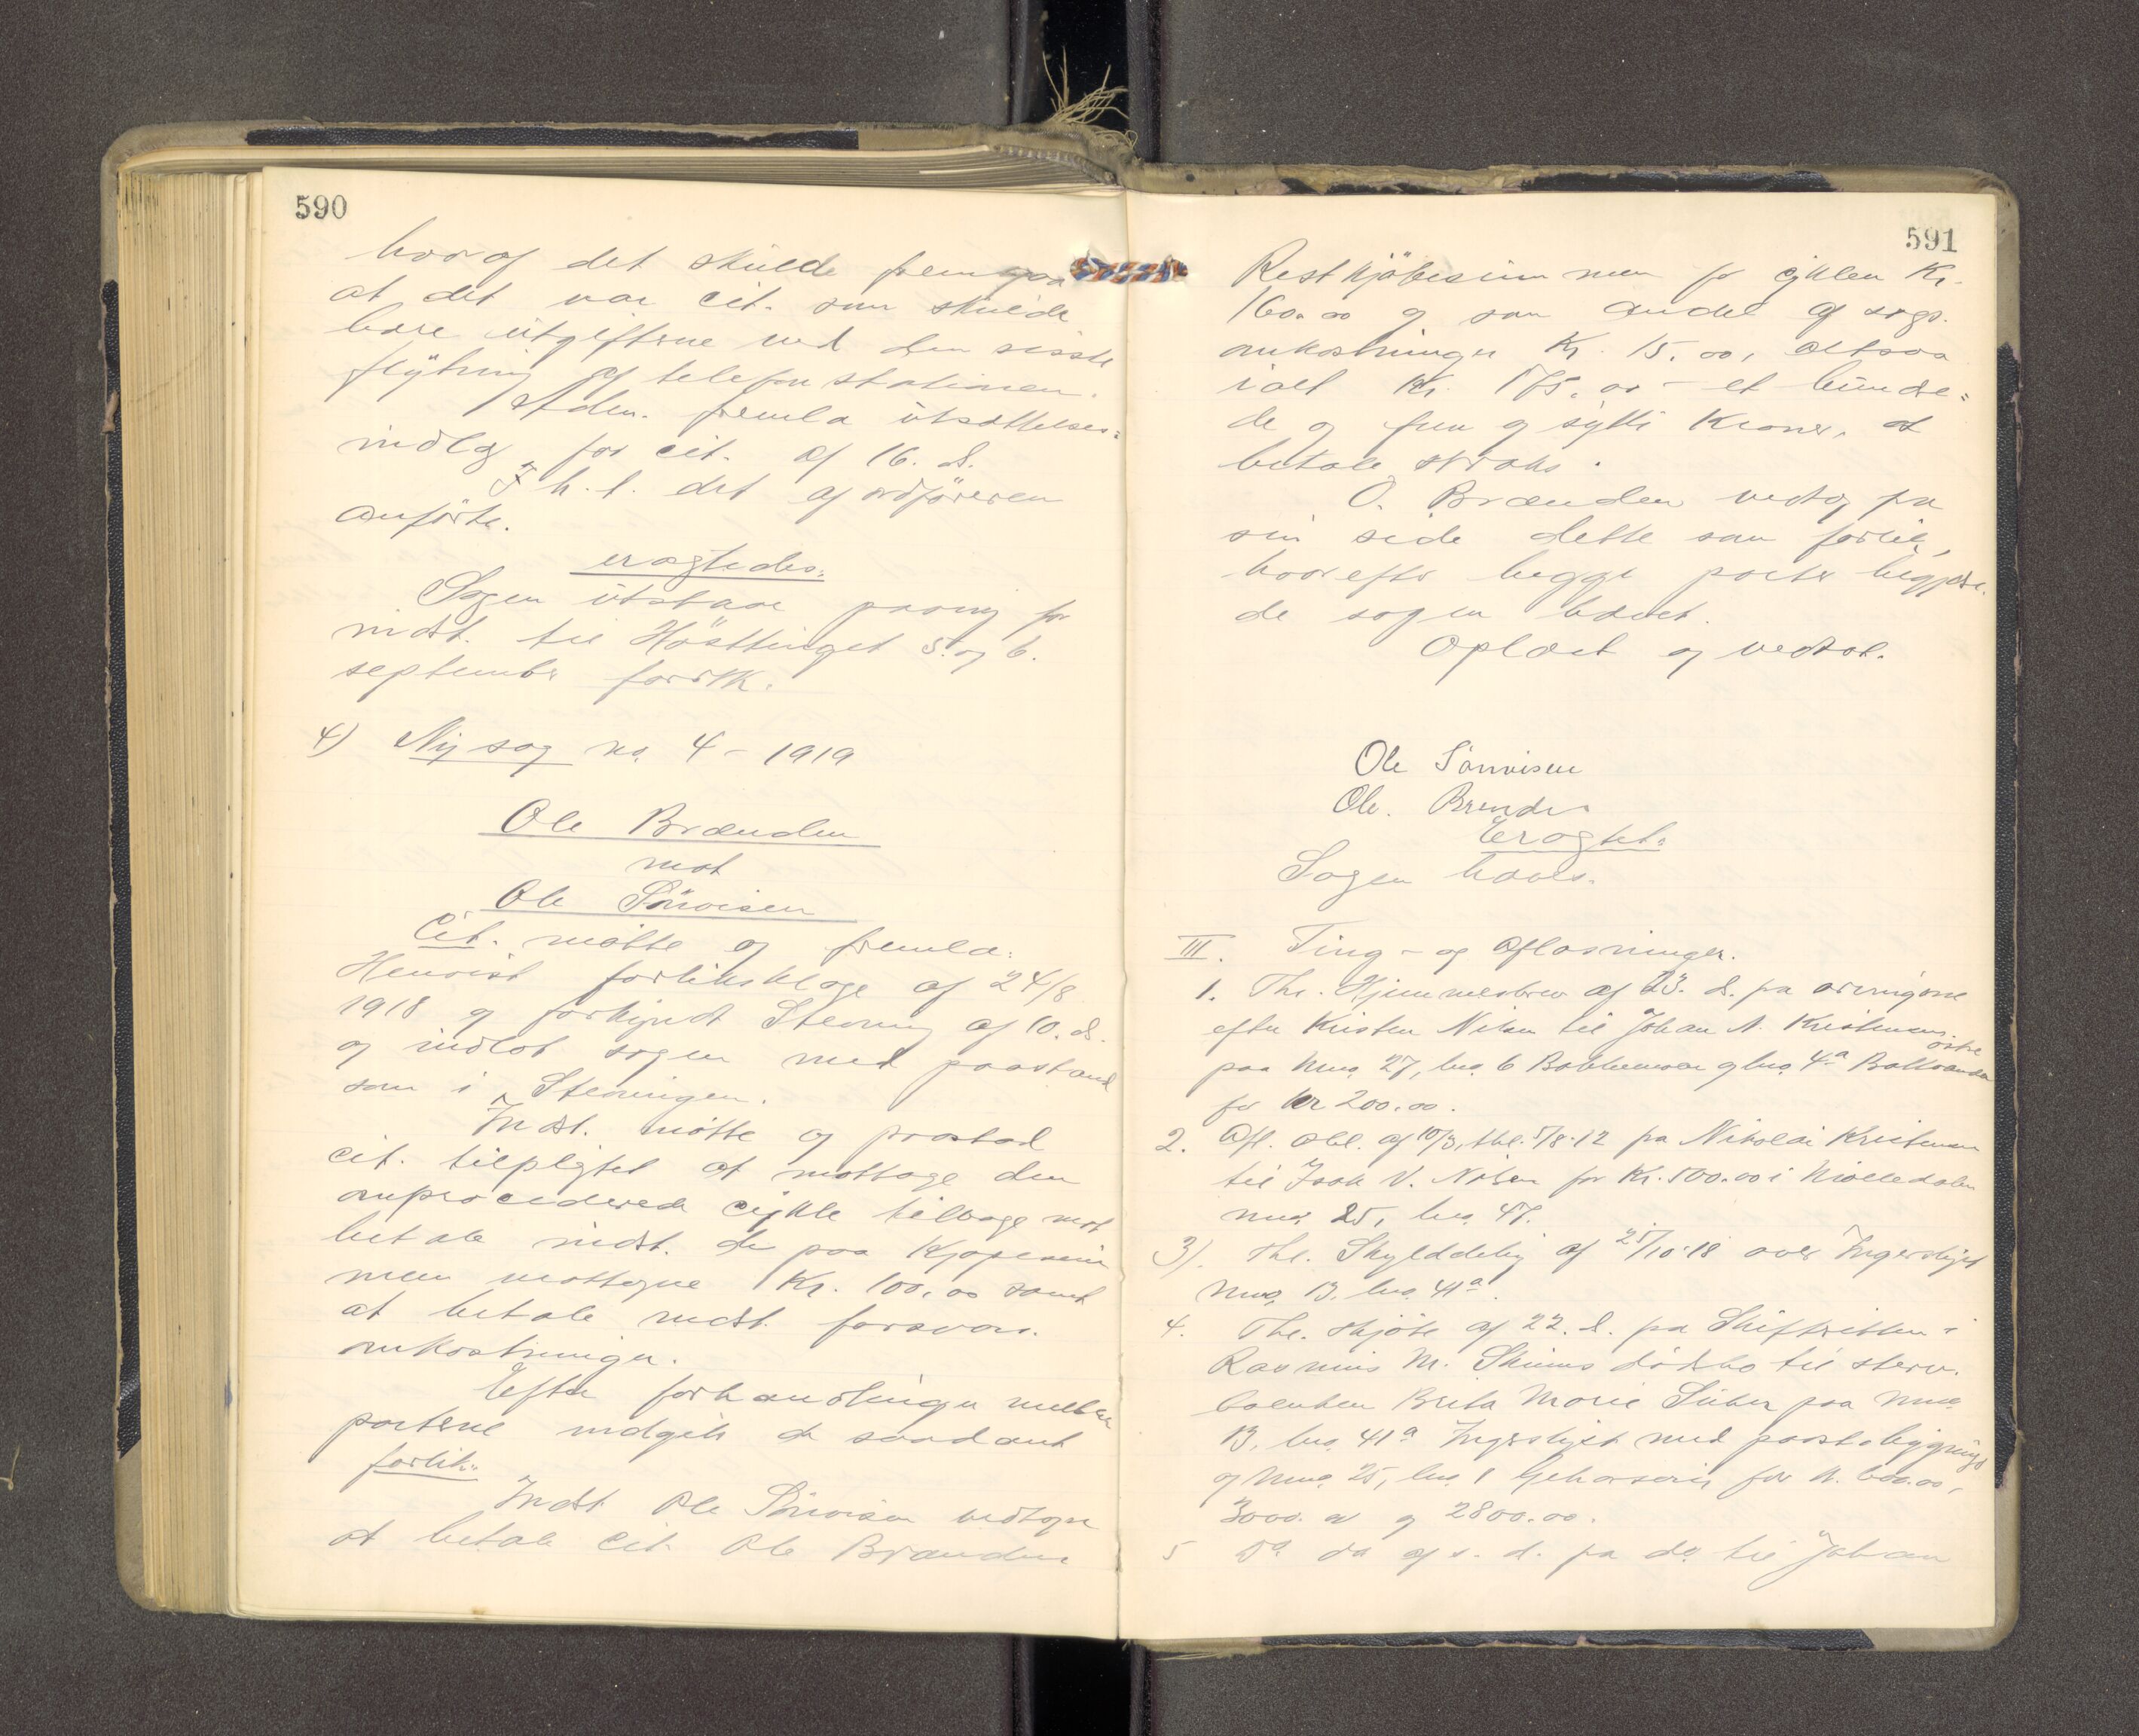 590
hvoraf det skulde fremgaa
at det var cit. som skulde
bære utgifterne ved den sisste
flytning af telefonstationen.
fremla utsættelses=
indlæg for cit. af 16. d.
I h. t. det af ordføreren
anførte.
eragtedes:
Sagen utstaar paany for
indst. til Høsttinget 5. og 6.
september førstk.
4) Ny sag no. 4 - 1919
Ole Brænden
mot
Ole Sörvisen
Cit. møtte og fremla:
Henvist forliksklage af 24/8
1918 og forkyndt Stevning af 10. d.
og indlot sagen med paastand
som i Stevningen.
Indst. møtte og paastod
cit. tilpligtet at mottage den
omprocederede cykle tilbage mot
betale indst. de paa Kjøpesum
men mottagne Kr. 100,00 samt
at betale indst. forsvars.
omkostninger.
Efter forhandlinger mellem
parterne indgik de saadant
forlik:
Indst. Ole Sörvisen vedtog
at betale cit. Ole Brænden
591
Restkjøbesummen for cyklen Kr.
160.00 og som andel af sags.
omkostninger Kr. 15.00, altsaa
ialt Kr. 175.00 - et hundre=
de og fem og sytti Kroner, at
betale straks.
O. Brænden vedtog paa
sin side dette som forlik,
hvorefter begge parter begjære.
de sagen hævet.
Oplæst og vedtat.
Ole Sörvisen
Ole. Brenden
Eragtet:
Sagen hæves.
III. Ting - og Aflæsninger.
1. Thl. Hjemmelsbrev af 23. d. fra arvingerne
efter Kristen Nilsen til Johan A. Kristensen
østre
paa gno. 27, bno. 6 og bno. 4a
for Kr 200.00.
2. Afl. Obl. af 10/3, thl. 5/8-12 fra Nikolai Kristensen
til Isak V. Nilsen for Kr. 500.00 i
gno. 25, bno. 47.
3). Thl. Skylddeling af 25/10-18 over Ingerslyst
gno. 13, bno. 41a.
4. Thl. Skjøte af 22. d. fra Skifteretten i
Rasmus M. dødsbo til sterv.
boenken Brita Marie paa gno.
13, bno. 41a Ingerslyst med paastaaende bygninger
og gno. 25, bno. 1 for Kr. 600.00,
3000.00 og 2800.00.
5 Do do af s. d. fra do. til Johan